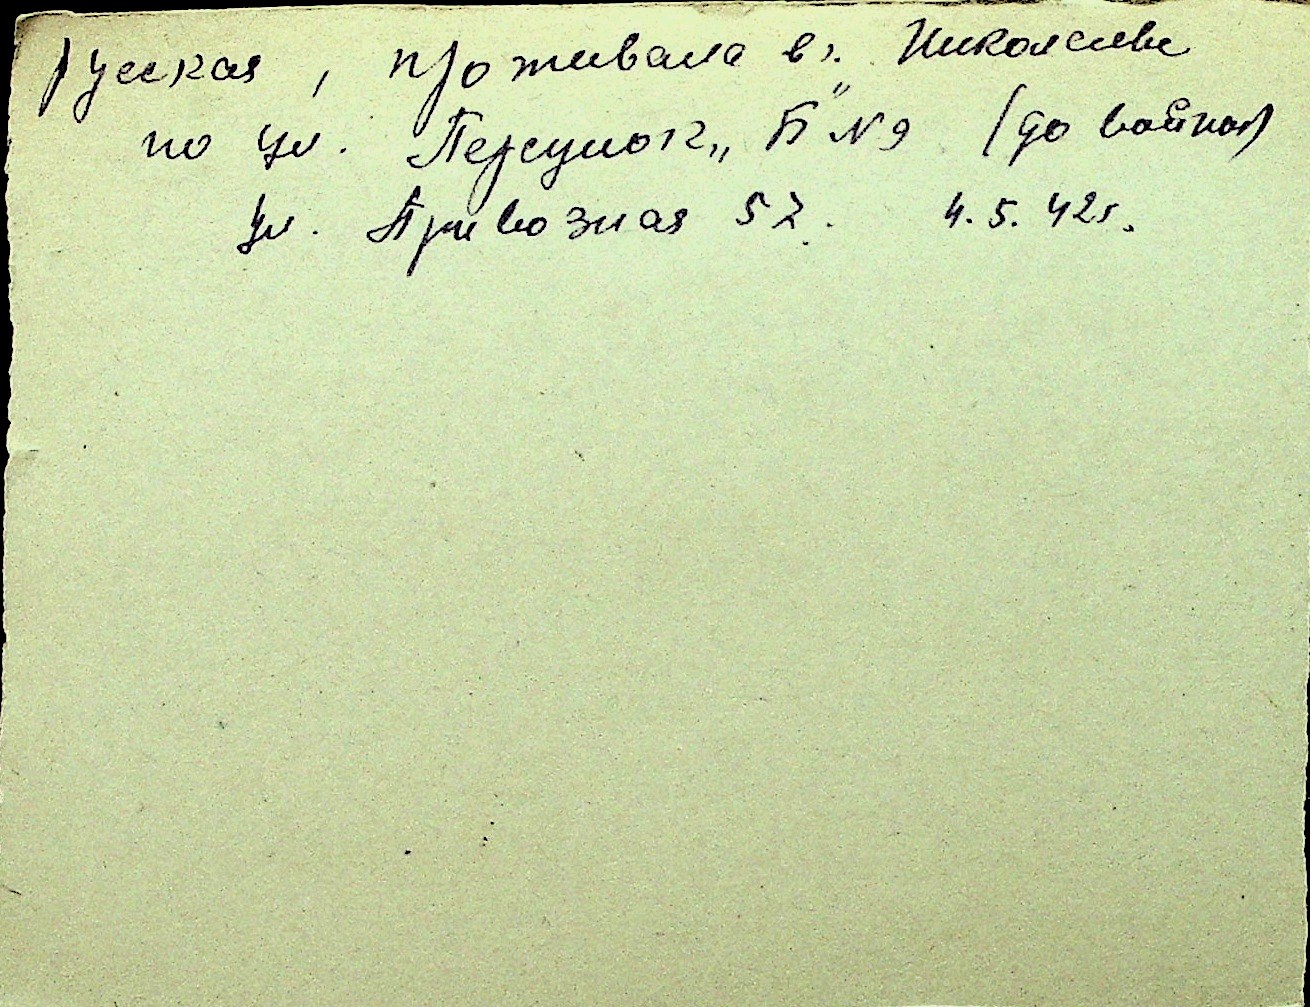 русская, проживала в г. Николаеве
по ул. Переулок „Б" №9 (до войны)
ул. Привозная 52. 4.5.42г.